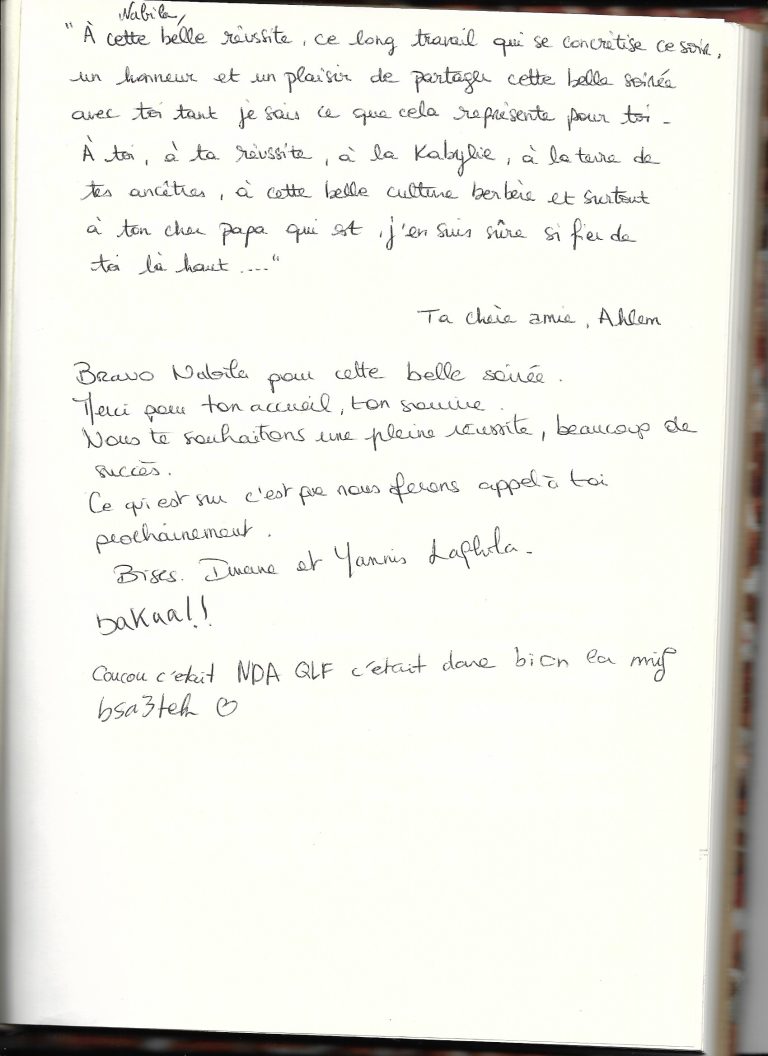 Nabila,
" À cette belle réussite, ce long travail qui se concrétise ce soir,
un honneur et un plaisir de partager cette belle soirée
avec toi tant je sais ce que cela représente pour toi -
À toi, à ta réussite, à la Kabylie, à la terre de
tes ancêtres, à cette belle culture berbère et surtout
à ton cher papa qui est, j'en suis sûre si fier de
toi là haut ...."
Ta chère amie, Ahlem
Bravo Nabila pour cette belle soirée.
Merci pour ton accueil, ton sourire.
Nous te souhaitons une pleine réussite, beaucoup de
succès.
Ce qui est sur c'est que nous ferons appel à toi
prochainement.
Bises. et Yannis
baKaa!!
Coucou c'était NDA QLF c'était dare bien la mif
bsa3tek ♡